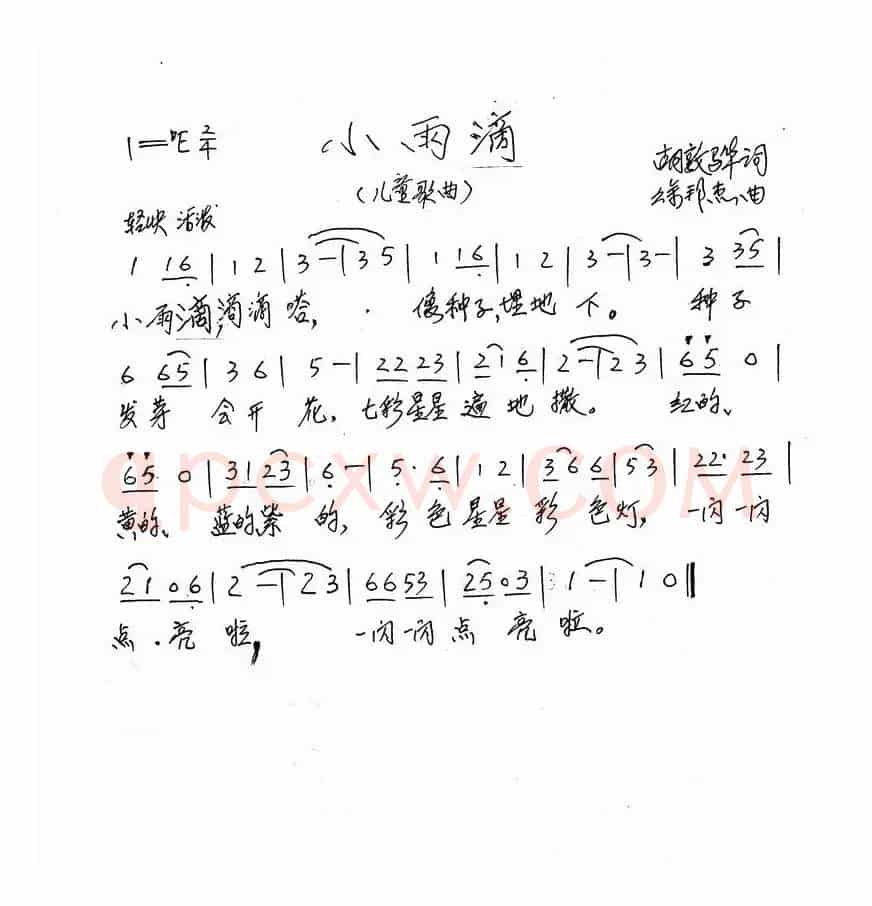 1=♭E 2/4
小雨滴
(儿童歌曲)
胡敦骅词
徐邦杰曲
轻快 活泼
1 16 | 1 2 | 3 - | 3 5 | 1 16 | 1 2 | 3 - | 3 - | 3 35 |
小雨滴,滴滴嗒, 像种子,埋地下。 种子
6 65 | 3 6 | 5 - | 22 23 | 21 6 | 2 - | 2 3 | 65 0 |
发芽 会开花, 七彩星星遍地撒。 红的、
65 0 | 31 23 | 6 - | 5· 6 | 1 2 | 36 6 | 53 | 22· 23 |
黄的、蓝的紫的, 彩色星星彩色灯, 一闪一闪
21 06 | 2 - | 2 3 | 66 53 | 25 03 | 1 - | 1 0 ‖
点·亮啦, 一闪一闪点亮啦。
qpcxw.com